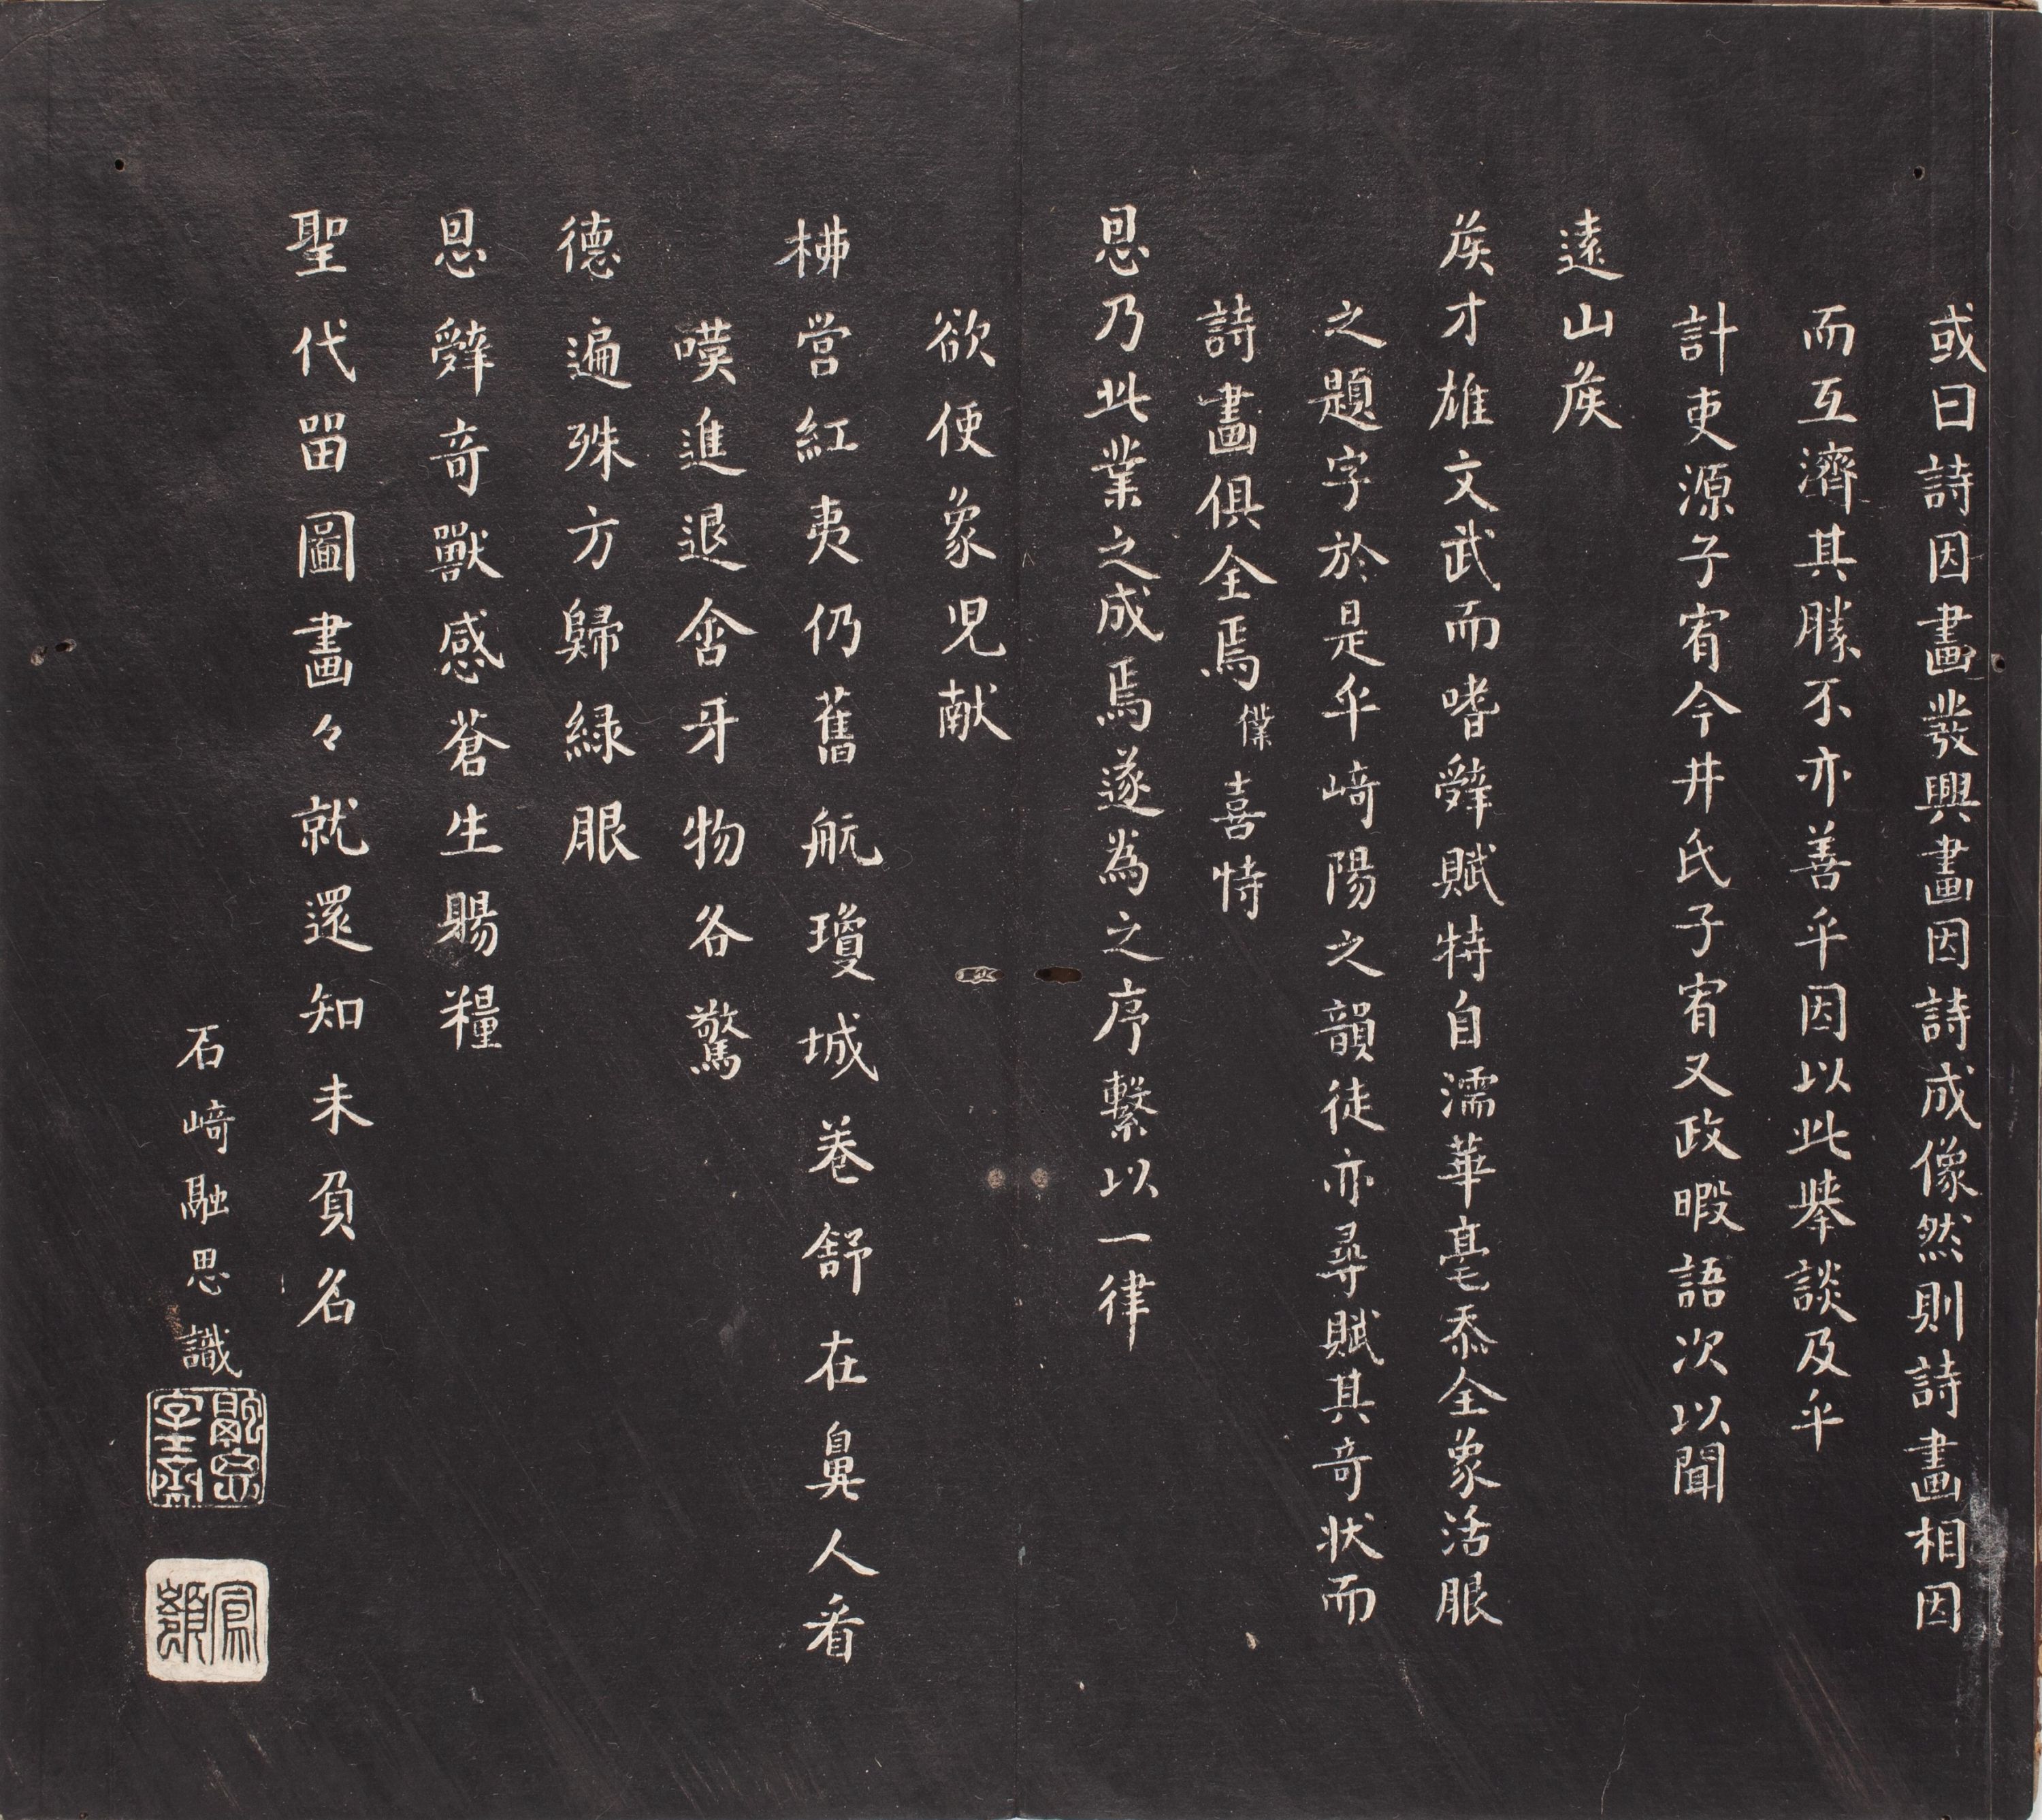 或曰詩因畫發興畫因詩成像然則詩畫相因
而互濟其勝不亦善乎因以此擧談及乎
計吏源子宥今井氏子宥又政暇語次以聞
遠山矦
矦才雄文武而嗜辭賦特自濡華毫忝全象活眼
之題字於是乎﨑陽之韻徒亦尋賦其奇状而
詩畫俱全焉僕喜恃
恩乃此業之成焉遂為之序繋以一律
欲使象児献
柫営紅夷仍舊航瓊城巻舒在鼻人看
嘆進退含牙物各驚
德遍殊方歸緑眼
恩辭奇獸感蒼生賜糧
聖代畄圖畫々就還知未負名
石﨑融思識
融思
字士齋
鳳嶺